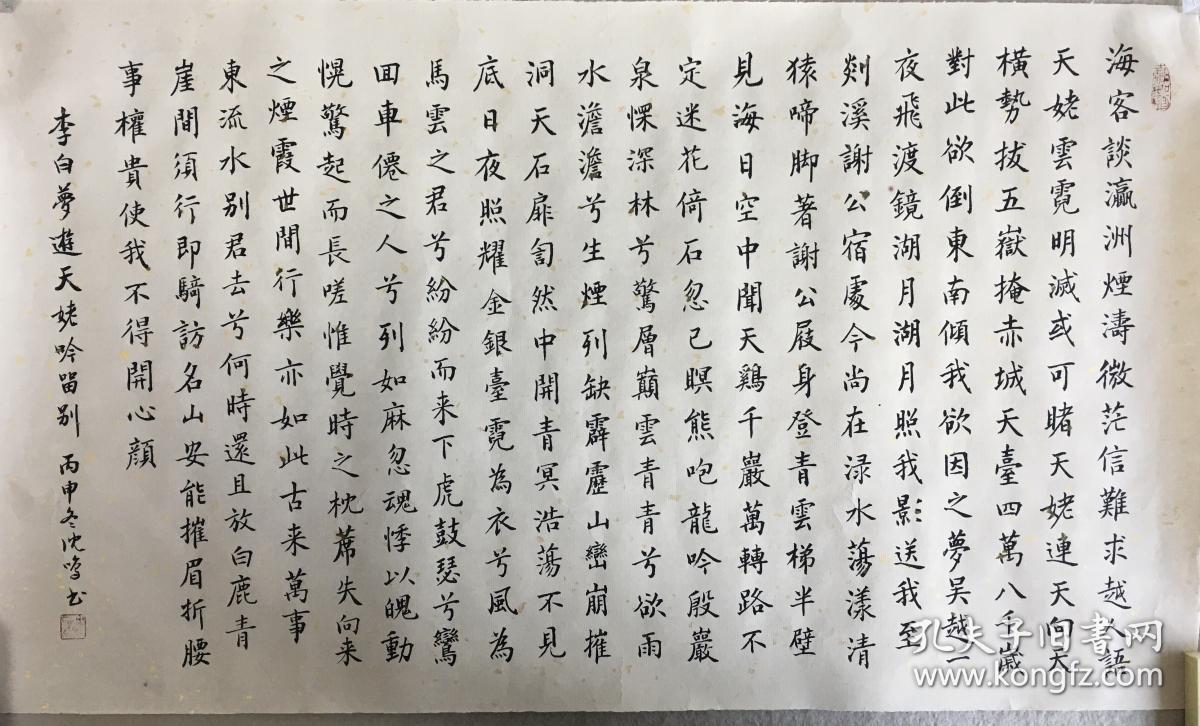 海客談瀛洲煙濤微茫信難求越人語
天姥雲霓明滅或可睹天姥連天向天
橫勢拔五嶽掩赤城天臺四萬八千歲
對此欲倒東南傾我欲因之夢吴越一
夜飛渡鏡湖月湖月照我影送我至
剡溪謝公宿處今尚在渌水蕩漾清
猿啼脚著謝公屐身登青雲梯半壁
見海日空中聞天鷄千巖萬轉路不
定迷花倚石忽已暝熊咆龍吟殷巖
泉慄深林兮驚層巔雲青青兮欲雨
水澹澹兮生煙列缺霹靂山巒崩摧
洞天石扉訇然中開青冥浩蕩不見
底日夜照耀金銀臺霓為衣兮風為
馬雲之君兮紛紛而来下虎鼓瑟兮鸞
回車僊之人兮列如麻忽魂悸以魄動
愰驚起而長嗟惟覺時之枕蓆失向来
之煙霞世間行樂亦如此古来萬事
東流水别君去兮何時還且放白鹿青
崖間須行即騎訪名山安能摧眉折腰
事權貴使我不得開心顔
李白夢遊天姥吟留别 丙申冬沈鸣书
孔夫子旧书网
www.kongfz.com